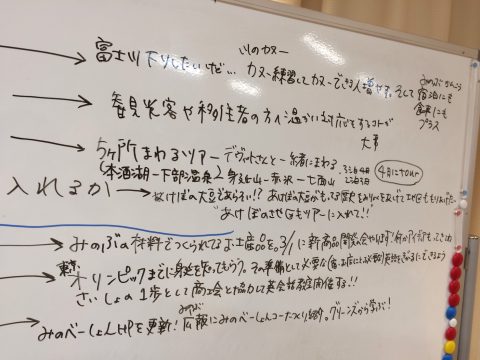 川のカヌー
富士川下りしたいけど… カヌー練習してカヌーできる人増やす。そして
みのぶかんこう
宿泊にも
食事にも
プラス
観光客や移住者の方へ温かい対応をすることが
大事
5ヶ所まわるツアー デヴィットさんと一緒にまわる
(本栖湖ー下部温泉ー身延山ー赤沢ー七面山
3泊4日
2泊3日
4月に1カ所
入れるか
あけぼの大豆であらそい!?
あけぼの
もツアーに入れて!!
みのぶの材料でつくられてるお土産品を。3/1に新商品開発の会やります!何かアイデアもってきてね
東京
オリンピックまでに身延を知ってもらう。その準備として必要な
さいしょの1歩として商工会と協力して英会話教室開催する!!
みのぶ
みのべーしょんHPを更新!広報にみのべーしょんコーナーつくり紹介。グリーンズから学ぶ!